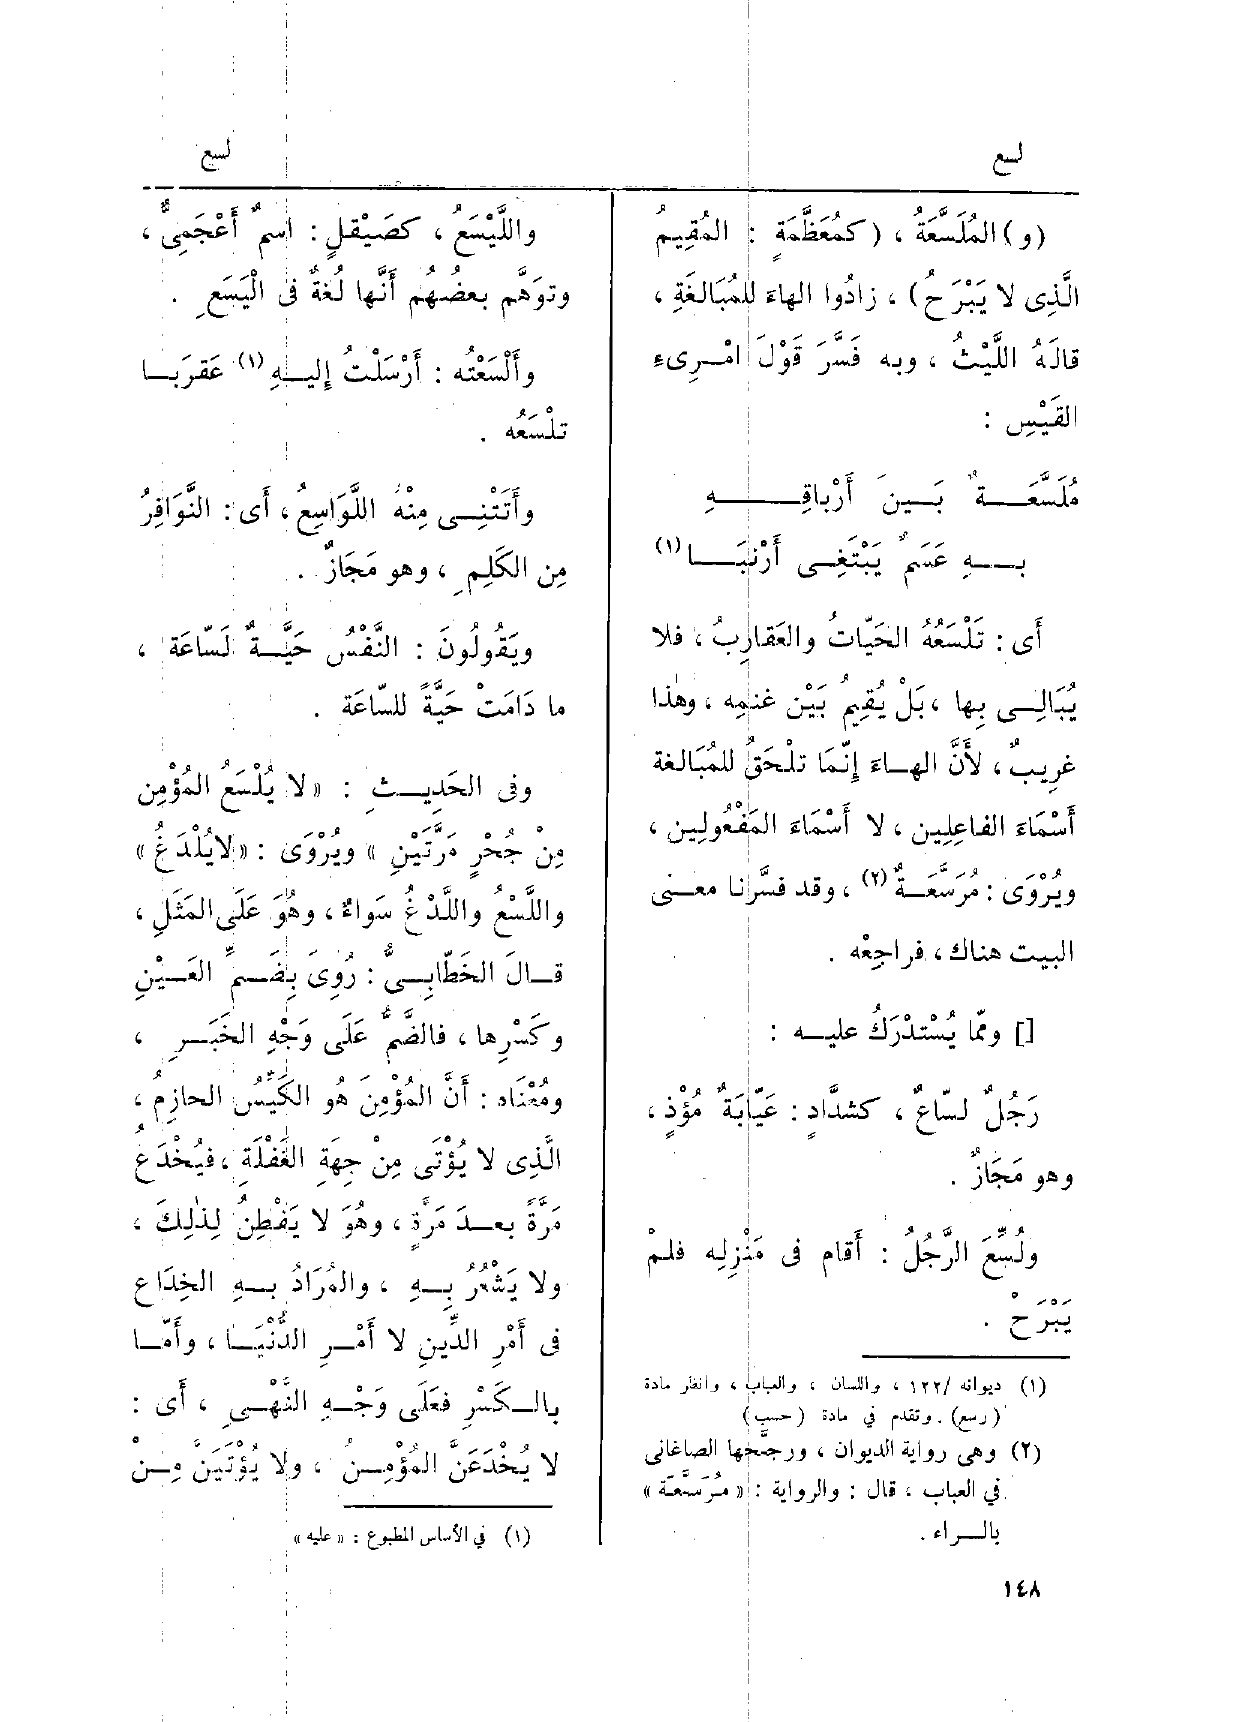 لسع
لسع
(و) المُلَسَّعَةُ ، (كمُعَظَّمَةٍ : المُقِيمُ
الَّذِى لا يَبْرَحُ) ، زادُوا الهاءَ للمُبَالغَةِ ،
قالَهُ اللَّيْثُ ، وبه فَسَّرَ قَوْلَ امْـرِىءِ
القَيْسِ :
مُلَسَّعَـــةٌ بَـينَ أَرْباقِـــــهِ
بـــهِ عَسَمٌ يَبْتَغِـى أَرْنَبَـــا (١)
أَى : تَلْسَعُهُ الحَيّاتُ والعَقارِبُ ، فلا
يُبَالِـى بِها ، بَلْ يُقِيمُ بَيْن غنمِه ، وهٰذا
غرِيبٌ ، لأَنَّ الهـاءَ إِنَّمَا تلْحَقُ للمُبَالغة
أَسْمَاءَ الفاعِلِين ، لا أَسْمَاءَ المَفْعُولِين ،
ويُرْوَى : مُرَسَّعَــةٌ (٢) ، وقد فسَّرْنا معنـى
البيت هناك ، فراجِعْه .
[] وممّا يُسْتدْرَكُ عليـه :
رَجُلٌ لسّاعٌ ، كشدَّادٍ : عَيَّابَةٌ مُؤْذٍ ،
وهو مَجَازٌ .
ولُسِّعَ الرَّجُلُ : أَقام فى مَنْزِلِه فلمْ
يَبْرَحْ .
(١) ديوانه /١٢٢ ، واللسان ، والعباب ، وانظر مادة
(رسع) . وتقدم في مادة (حسب)
(٢) وهى رواية الديوان ، ورجّحها الصاغانى
في العباب ، قال : والرواية : « مُرَسَّعَة »
بالـــراء .
١٤٨
واللَّيْسَعُ ، كصَيْقلٍ : اسمٌ أَعْجَمِىٌّ ،
وتوَهَّم بعضُهُم أَنَّها لُغةٌ فى الْيَسَعِ .
وأَلْسَعْتُه : أَرْسَلْتُ إِليـهِ (١) عَقرَبـا
تلْسَعُه .
وأَتَتْنِـى مِنْهُ اللَّوَاسِعُ ، أَى : النَّوَافِرُ
مِن الكَلِمِ ، وهو مَجَازٌ .
ويَقُولُونَ : النَّفْسُ حَيَّـةٌ لَسّاعَة ،
ما دَامَتْ حَيَّةً للسّاعَة .
وفى الحَدِيـثِ : « لا يُلْسَعُ المُؤْمِن
مِنْ جُحْرٍ مَرَّتَيْنِ » ويُرْوَى : « لايُلْدَغُ »
واللَّسْعُ واللَّدْغُ سَواءٌ ، وهُوَ عَلَى المَثَلِ ،
قـالَ الخَطّابِـىُّ : رُوِىَ بِضَـمِّ العَـيْنِ
وكَسْرِها ، فالضَّمُّ عَلَى وَجْهِ الخَبَـرِ ،
ومُعْنَاه : أَنَّ المُؤْمِنَ هُو الكَيِّسُ الحازِمُ ،
الَّذِى لا يُؤْتَى مِنْ جِهَةِ الغَفْلَةِ ، فيُخْدَعُ
مَرَّةً بعـدَ مَرَّةٍ ، وهُوَ لا يَفْطِنُ لِذٰلِكَ ،
ولا يَشْعُرُ بِـهِ ، والمُرَادُ بـهِ الخِدَاع
فى أَمْرِ الدِّينِ لا أَمْـرِ الدُّنْيَـا ، وأَمّـا
بالـكَسْرِ فعَلَى وَجْـهِ النَّهْـىِ ، أَى :
لا يُخْدَعَنَّ المُؤْمِـنُ ، ولا يُؤْتَيَنَّ مِـنْ
(١) في الأساس المطبوع : « عليه »